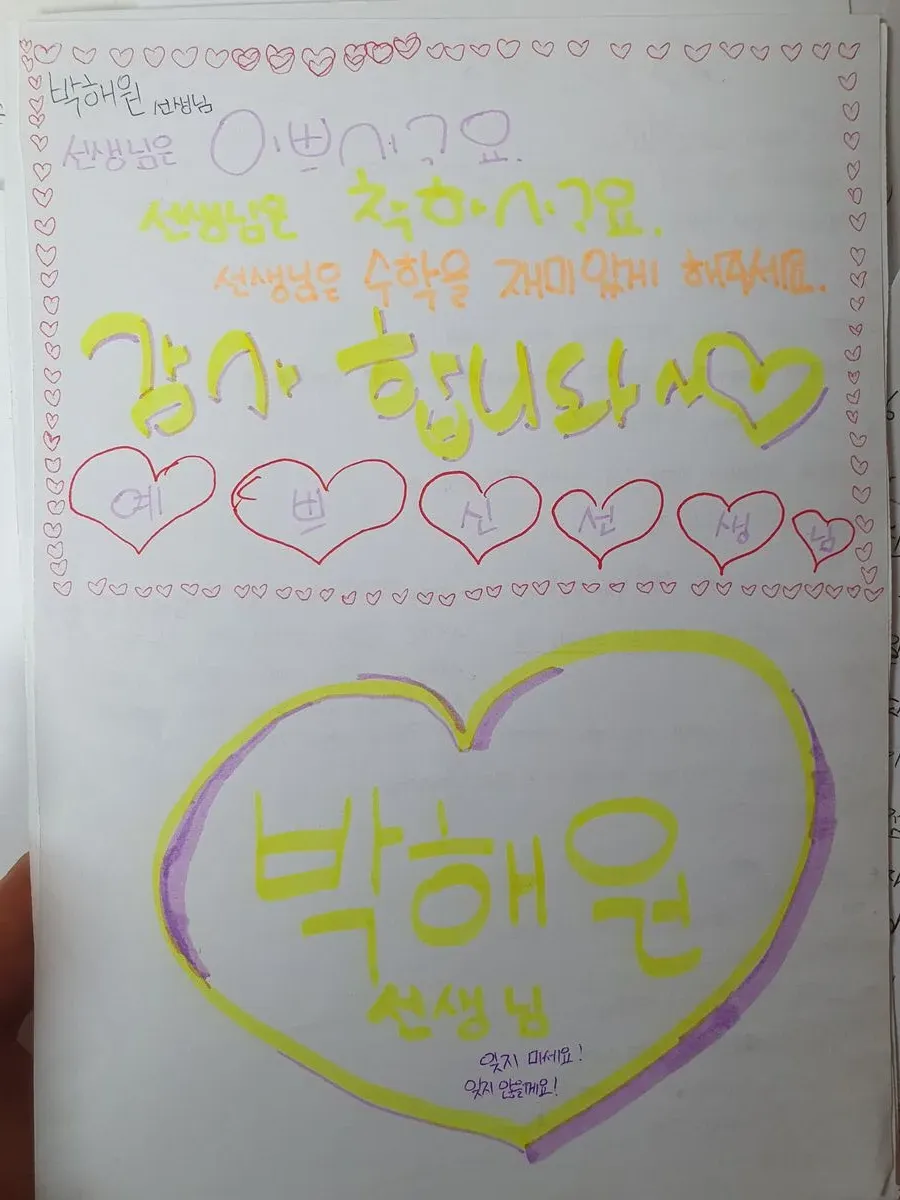 박해원 선생님
선생님은 이쁘시구요.
선생님은 착하시구요.
선생님은 수학을 재미있게 해주세요.
감사 합니다~♡
예 쁘 신 선 생 님
박해원
선생님
잊지 마세요!
잊지 않을게요!